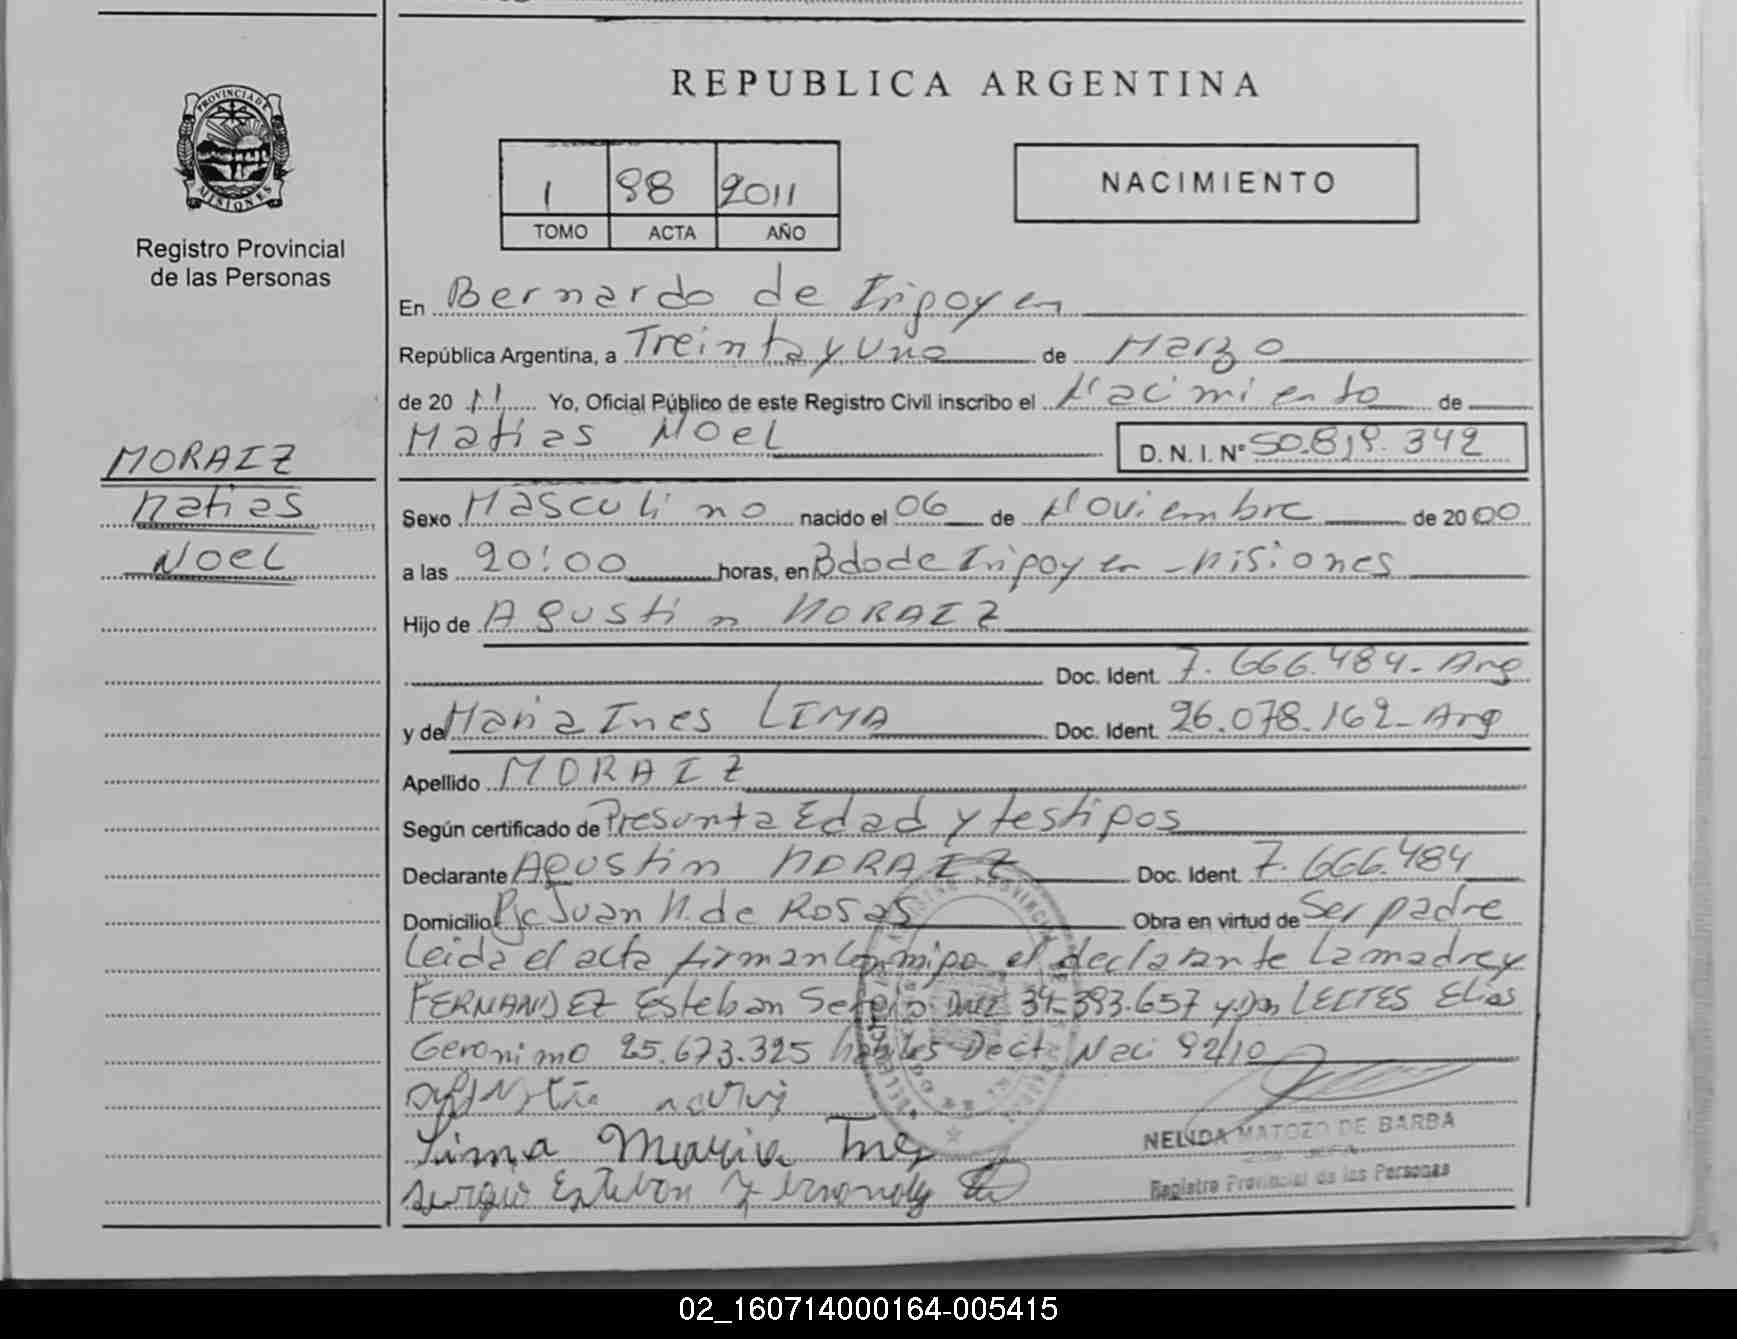 REPUBLICA ARGENTINA
PROVINCIA DE MISIONES
Registro Provincial
de las Personas
1 88 2011
TOMO ACTA AÑO
NACIMIENTO
En Bernardo de Irigoyen
República Argentina, a Treinta y Uno de Marzo
de 20 11 Yo, Oficial Público de este Registro Civil inscribo el Nacimiento de
Matias Noel D. N. I. Nº 50.819.342
MORAIZ
Matias
Noel
Sexo Masculino nacido el 06 de Noviembre de 20 00
a las 20:00 horas, en Bdo de Irigoyen - Misiones
Hijo de Agustin MORAIZ
Doc. Ident. 7.666.484- Arg
y de Maria Ines LIMA Doc. Ident. 26.078.162- Arg
Apellido MORAIZ
Según certificado de Presunta Edad y testigos
Declarante Agustin MORAIZ Doc. Ident. 7.666.484
Domicilio Pje Juan M. de Rosas Obra en virtud de Ser padre
Leida el acta firman conmigo el declarante La madre y
FERNANDEZ Esteban Sergio 34-393.657 y Don LEITES Elias
Geronimo 25.673.325 habiles Dect. Naci 92/10
Lima Maria Ine
Sergio Esteban Fernandez
NELIDA MATOZO DE BARBA
Registro Provincial de las Personas
02_160714000164-005415